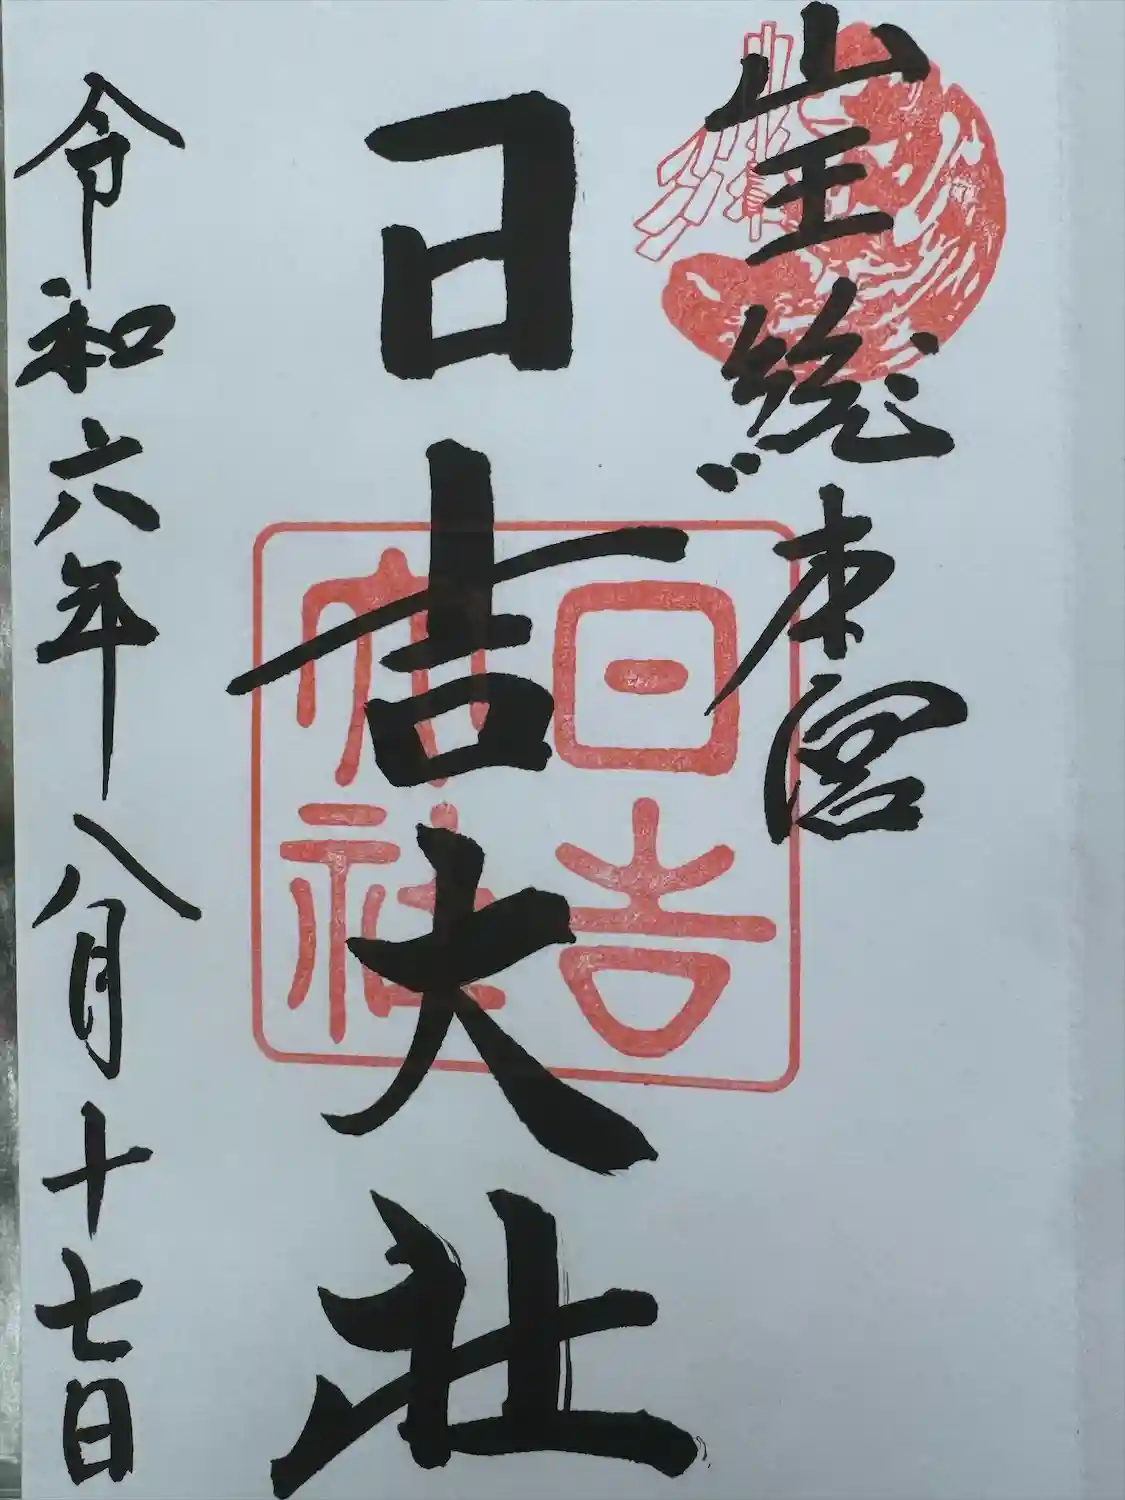 山王総本宮
日吉大社
日吉大社
令和六年八月十七日